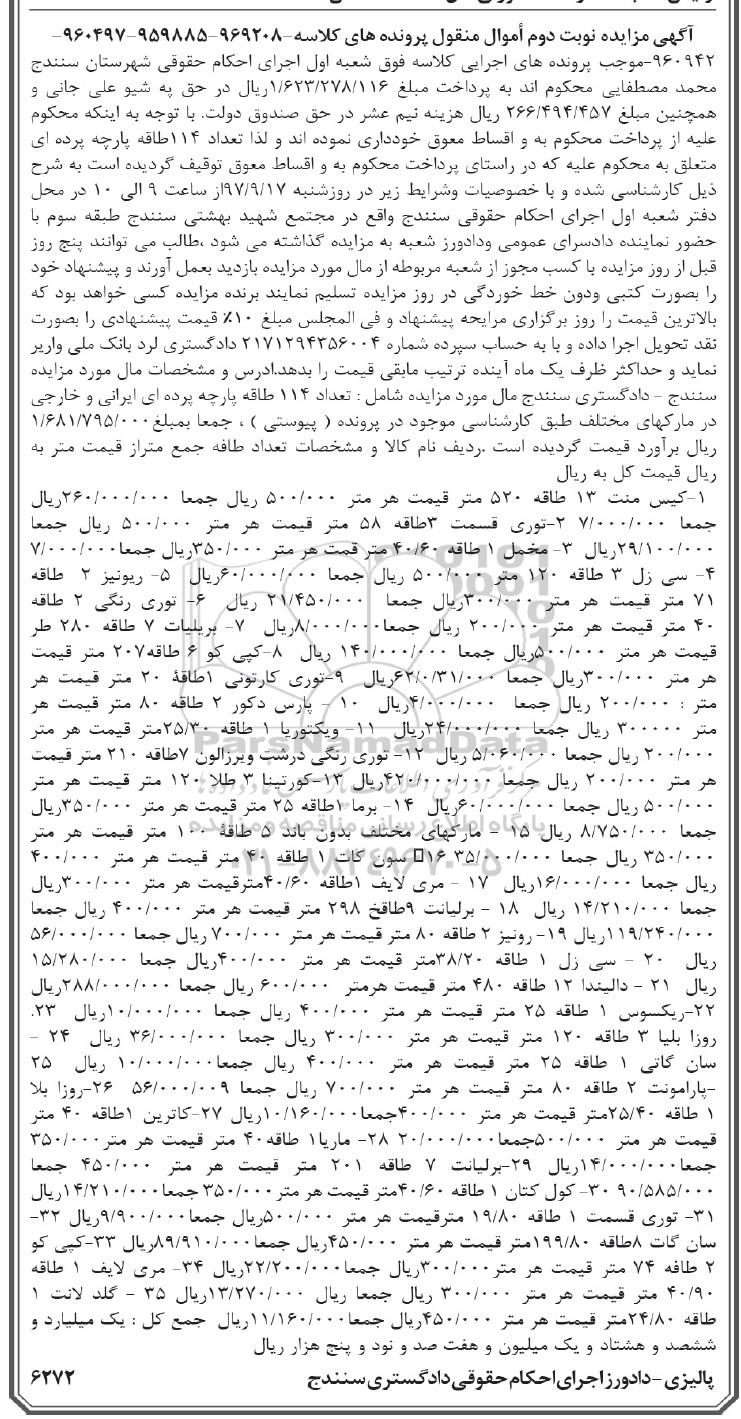 آگهی مزایده نوبت دوم اموال منقول پرونده های کلاسه-۹۶۹۲۰۸-۹۵۹۸۸۵-۹۶۰۴۹۷-
۹۶۰۹۴۲-موجب پرونده های اجرایی کلاسه فوق شعبه اول اجرای احکام حقوقی شهرستان سنندج
محمد مصطفایی محکوم اند به پرداخت مبلغ ۱/۶۲۳/۲۷۸/۱۱۶ریال در حق په شیو علی جانی و
همچنین مبلغ ۲۶۶/۴۹۴/۴۵۷ ریال هزینه نیم عشر در حق صندوق دولت. با توجه به اینکه محکوم
علیه از پرداخت محکوم به و اقساط معوق خودداری نموده اند و لذا تعداد ۱۱۴طاقه پارچه پرده ای
متعلق به محکوم علیه که در راستای پرداخت محکوم به و اقساط معوق توقیف گردیده است به شرح
ذیل کارشناسی شده و با خصوصیات وشرایط زیر در روزشنبه ۹۷/۹/۱۷از ساعت ۹ الی ۱۰ در محل
دفتر شعبه اول اجرای احکام حقوقی سنندج واقع در مجتمع شهید بهشتی سنندج طبقه سوم با
حضور نماینده دادسرای عمومی ودادورز شعبه به مزایده گذاشته می شود ،طالب می توانند پنج روز
قبل از روز مزایده با کسب مجوز از شعبه مربوطه از مال مورد مزایده بازدید بعمل آورند و پیشنهاد خود
را بصورت کتبی ودون خط خوردگی در روز مزایده تسلیم نمایند برنده مزایده کسی خواهد بود که
بالاترین قیمت را روز برگزاری مرایحه پیشنهاد و فی المجلس مبلغ ۱۰٪ قیمت پیشنهادی را بصورت
نقد تحویل اجرا داده و با به حساب سپرده شماره ۲۱۷۱۲۹۴۳۵۶۰۰۴ دادگستری لرد بانک ملی واریر
نماید و حداکثر ظرف یک ماه آینده ترتیب مابقی قیمت را بدهد.ادرس و مشخصات مال مورد مزایده
سنندج - دادگستری سنندج مال مورد مزایده شامل : تعداد ۱۱۴ طاقه پارچه پرده ای ایرانی و خارجی
در مارکهای مختلف طبق کارشناسی موجود در پرونده ( پیوستی ) ، جمعا بمبلغ ۱/۶۸۱/۷۹۵/۰۰۰
ریال برآورد قیمت گردیده است .ردیف نام کالا و مشخصات تعداد طافه جمع متراز قیمت متر به
ریال قیمت کل به ریال
۱-کیس منت ۱۳ طاقه ۵۲۰ متر قیمت هر متر ۵۰۰/۰۰۰ ریال جمعا ۲۶۰/۰۰۰/۰۰۰ریال
جمعا ۷/۰۰۰/۰۰۰ ۲-توری قسمت ۳طاقه ۵۸ متر قیمت هر متر ۵۰۰/۰۰۰ ریال جمعا
۲۹/۱۰۰/۰۰۰ریال ۳- مخمل ۱ طاقه ۴۰/۶۰ متر قمت هر متر ۳۵۰/۰۰۰ریال جمعا۷/۰۰۰/۰۰۰
۴- سی زل ۳ طاقه ۱۲۰ متر ۵۰۰/۰۰۰ ریال جمعا ۶۰/۰۰۰/۰۰۰ریال ۵- ریونیز ۲ طاقه
۷۱ متر قیمت هر متر ۳۰۰/۰۰۰ریال جمعا ۲۱/۴۵۰/۰۰۰ ریال ۶- توری رنگی ۲ طاقه
۴۰ متر قیمت هر متر ۲۰۰/۰۰۰ ریال جمعا ۸/۰۰۰/۰۰۰ریال ۷- بریلیات ۷ طاقه ۲۸۰ طر
قیمت هر متر ۵۰۰/۰۰۰ریال جمعا ۱۴۰/۰۰۰/۰۰۰ ریال ۸-کپی کو ۶ طاقه۲۰۷ متر قیمت
هر متر ۳۰۰/۰۰۰ریال جمعا ۶۲/۰/۳۱/۰۰۰ریال ۹-توری کارتونی ۱طاقهٔ ۲۰ متر قیمت هر
متر : ۲۰۰/۰۰۰ ریال جمعا ۴/۰۰۰/۰۰۰ریال ۱۰ - پارس دکور ۲ طاقه ۸۰ متر قیمت هر
متر ۳۰۰۰۰۰ ریال جمعا ۲۴/۰۰۰/۰۰۰ریال ۱۱- ویکتوریا ۱ طاقه ۲۵/۳۰متر قیمت هر متر
۲۰۰/۰۰۰ ریال جمعا ۵/۰۶۰/۰۰۰ ریال ۱۲- توری رنگی درشت ویرزالون ۷طاقه ۲۱۰ متر قیمت
هر متر ۲۰۰/۰۰۰ ریال جمعا ۴۲۰/۰۰۰/۰۰۰ریال ۱۳-کورتینا ۳ طلا ۱۲۰ متر قیمت هر متر
۵۰۰/۰۰۰ ریال جمعا ۶۰/۰۰۰/۰۰۰ریال ۱۴- برما ۱طاقه ۲۵ متر قیمت هر متر ۳۵۰/۰۰۰ریال
جمعا ۸/۷۵۰/۰۰۰ ریال ۱۵ - مارکهای مختلف بدون باند ۵ طاقهٔ ۱۰۰ متر قیمت هر متر
۳۵۰/۰۰۰ ریال جمعا ۳۵/۰۰۰/۰۰۰ ۱۶ سون کات ۱ طاقه ۴۰ متر قیمت هر متر ۴۰۰/۰۰۰
ریال جمعا ۱۶/۰۰۰/۰۰۰ریال ۱۷ - مری لایف ۱طاقه ۴۰/۶۰مترقیمت هر متر ۳۰۰/۰۰۰ریال
جمعا ۱۴/۲۱۰/۰۰۰ ریال ۱۸ - برلیانت ۹طاقخ ۲۹۸ متر قیمت هر متر ۴۰۰/۰۰۰ ریال جمعا
۱۱۹/۲۴۰/۰۰۰ریال ۱۹- رونیز ۲ طاقه ۸۰ متر قیمت هر متر ۷۰۰/۰۰۰ ریال جمعا ۵۶/۰۰۰/۰۰۰
ریال ۲۰ - سی زل ۱ طاقه ۳۸/۲۰متر قیمت هر متر ۴۰۰/۰۰۰ریال جمعا ۱۵/۲۸۰/۰۰۰
ریال ۲۱ - دالیندا ۱۲ طاقه ۴۸۰ متر قیمت هرمتر ۶۰۰/۰۰۰ ریال جمعا ۲۸۸/۰۰۰/۰۰۰ریال
۲۲-ریکسوس ۱ طاقه ۲۵ متر قیمت هر متر ۴۰۰/۰۰۰ ریال جمعا ۱۰/۰۰۰/۰۰۰ریال ۲۳.
روزا بلیا ۳ طاقه ۱۲۰ متر قیمت هر متر ۳۰۰/۰۰۰ ریال جمعا ۳۶/۰۰۰/۰۰۰ ریال ۲۴ -
سان گاتی ۱ طاقه ۲۵ متر قیمت هر متر ۴۰۰/۰۰۰ ریال جمعا۱۰/۰۰۰/۰۰۰ ریال ۲۵
-پارامونت ۲ طاقه ۸۰ متر قیمت هر متر ۷۰۰/۰۰۰ ریال جمعا ۵۶/۰۰۰/۰۰۹ ۲۶-روزا بلا
۱ طاقه ۲۵/۴۰متر قیمت هر متر ۴۰۰/۰۰۰جمعا۱۰/۱۶۰/۰۰۰ریال ۲۷-کاترین ۱طاقه ۴۰ متر
قیمت هر متر ۵۰۰/۰۰۰جمعا۲۰/۰۰۰/۰۰۰ ۲۸- ماریا۱ طاقه۴۰ متر قیمت هر متر۳۵۰/۰۰۰
جمعا۱۴/۰۰۰/۰۰۰ریال ۲۹-برلیانت ۷ طاقه ۲۰۱ متر قیمت هر متر ۴۵۰/۰۰۰ جمعا
۹۰/۵۸۵/۰۰۰ ۳۰- کول کتان ۱ طاقه ۴۰/۶۰متر قیمت هر متر ۳۵۰/۰۰۰ جمعا۱۴/۲۱۰/۰۰۰ریال
۳۱- توری قسمت ۱ طاقه ۱۹/۸۰ مترقیمت هر متر ۵۰۰/۰۰۰ریال جمعا۹/۹۰۰/۰۰۰ریال ۳۲-
سان گات ۸طاقه ۱۹۹/۸۰متر قیمت هر متر ۴۵۰/۰۰۰ریال جمعا۸۹/۹۱۰/۰۰۰ریال ۳۳-کپی کو
۲ طافه ۷۴ متر قیمت هر متر۳۰۰/۰۰۰ریال جمعا۲۲/۲۰۰/۰۰۰ریال ۳۴- مری لایف ۱ طاقه
۴۰/۹۰ متر قیمت هر متر ۳۰۰/۰۰۰ ریال جمعا ریال ۱۳/۲۷۰/۰۰۰ریال ۳۵ - گلد لانت ۱
طاقه ۲۴/۸۰متر قیمت هر متر ۴۵۰/۰۰۰ریال جمعا۱۱/۱۶۰/۰۰۰ریال جمع کل : یک میلیارد و
ششصد و هشتاد و یک میلیون و هفت صد و نود و پنج هزار ریال
پالیزی - دادورز اجرای احکام حقوقی دادگستری سنندج ۶۲۷۲
ParsNamadData
پایگاه اطلاع رسانی مناقصه و مزایده
۰۲۱-۸۸۳۴۹۶۷۰-۵